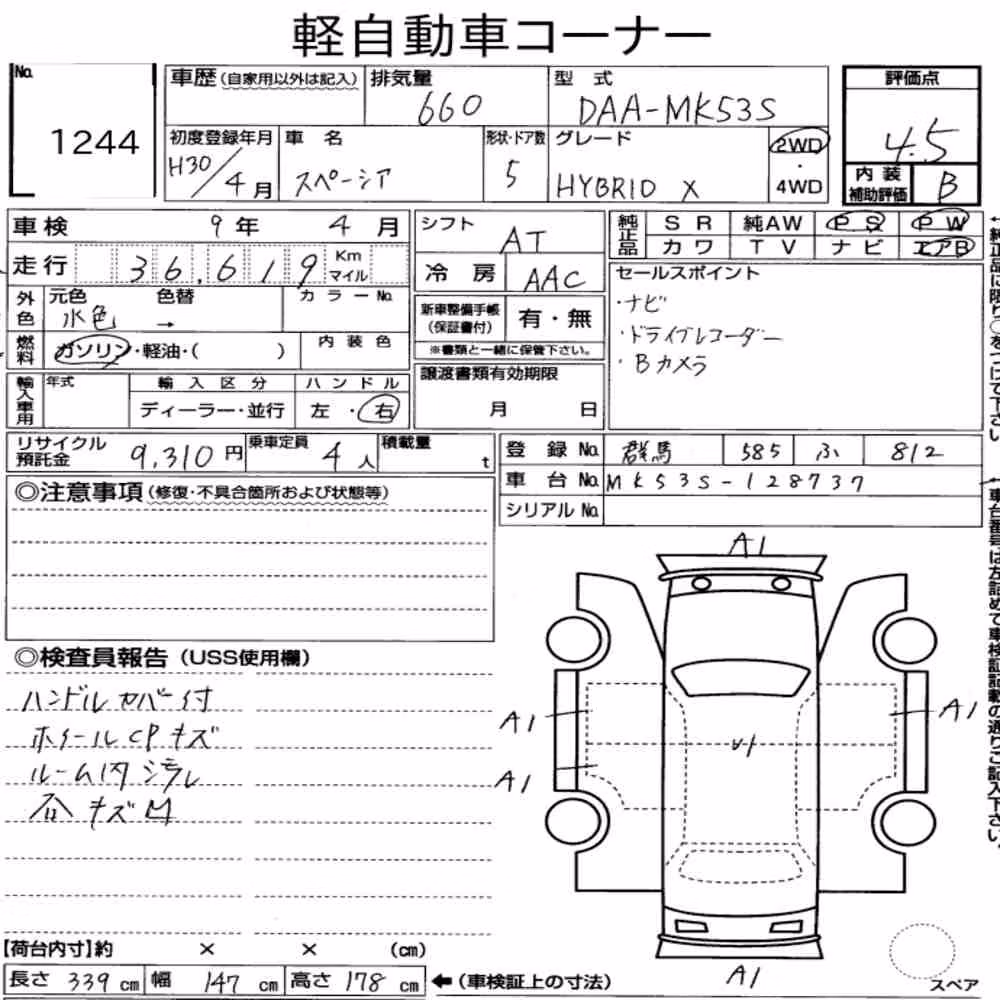 軽自動車コーナー
No. 1244
車歴 (自家用以外は記入) 排気量 660 型式 DAA-MK53S
初度登録年月 H30/4月 車名 スペーシア 形状・ドア数 5 グレード HYBRID X 2WD・4WD
評価点 4.5
内装補助評価 B
車検 9年 4月
走行 36,619 Km マイル
外色 元色 水色 色替 → カラーNo.
燃料 ガソリン・軽油・( ) 内装色
輸入車用 年式 輸入区分 ディーラー・並行 ハンドル 左・右
シフト AT
冷房 AAC
新車整備手帳(保証書付) 有・無
※書類と一緒に保管下さい。
譲渡書類有効期限
月 日
純正品 SR 純AW PS PW
カワ TV ナビ エアB
セールスポイント
・ナビ
・ドライブレコーダー
・Bカメラ
←純正品に限り○をつけて下さい。
リサイクル預託金 9,310円 乗車定員 4人 積載量 t
登録No. 群馬 585 ふ 812
車台No. MK53S-128737
シリアルNo.
←車台番号は左詰めで車検証記載の通りご記入下さい。
◎注意事項 (修復・不具合箇所および状態等)
◎検査員報告 (USS使用欄)
ハンドルカバー付
ホイールCPキズ
ルーム内
キズ凹
A1
A1
A1
A1
A1
【荷台内寸】約 × × (cm)
長さ 339 cm 幅 147 cm 高さ 178 cm ←(車検証上の寸法)
スペア